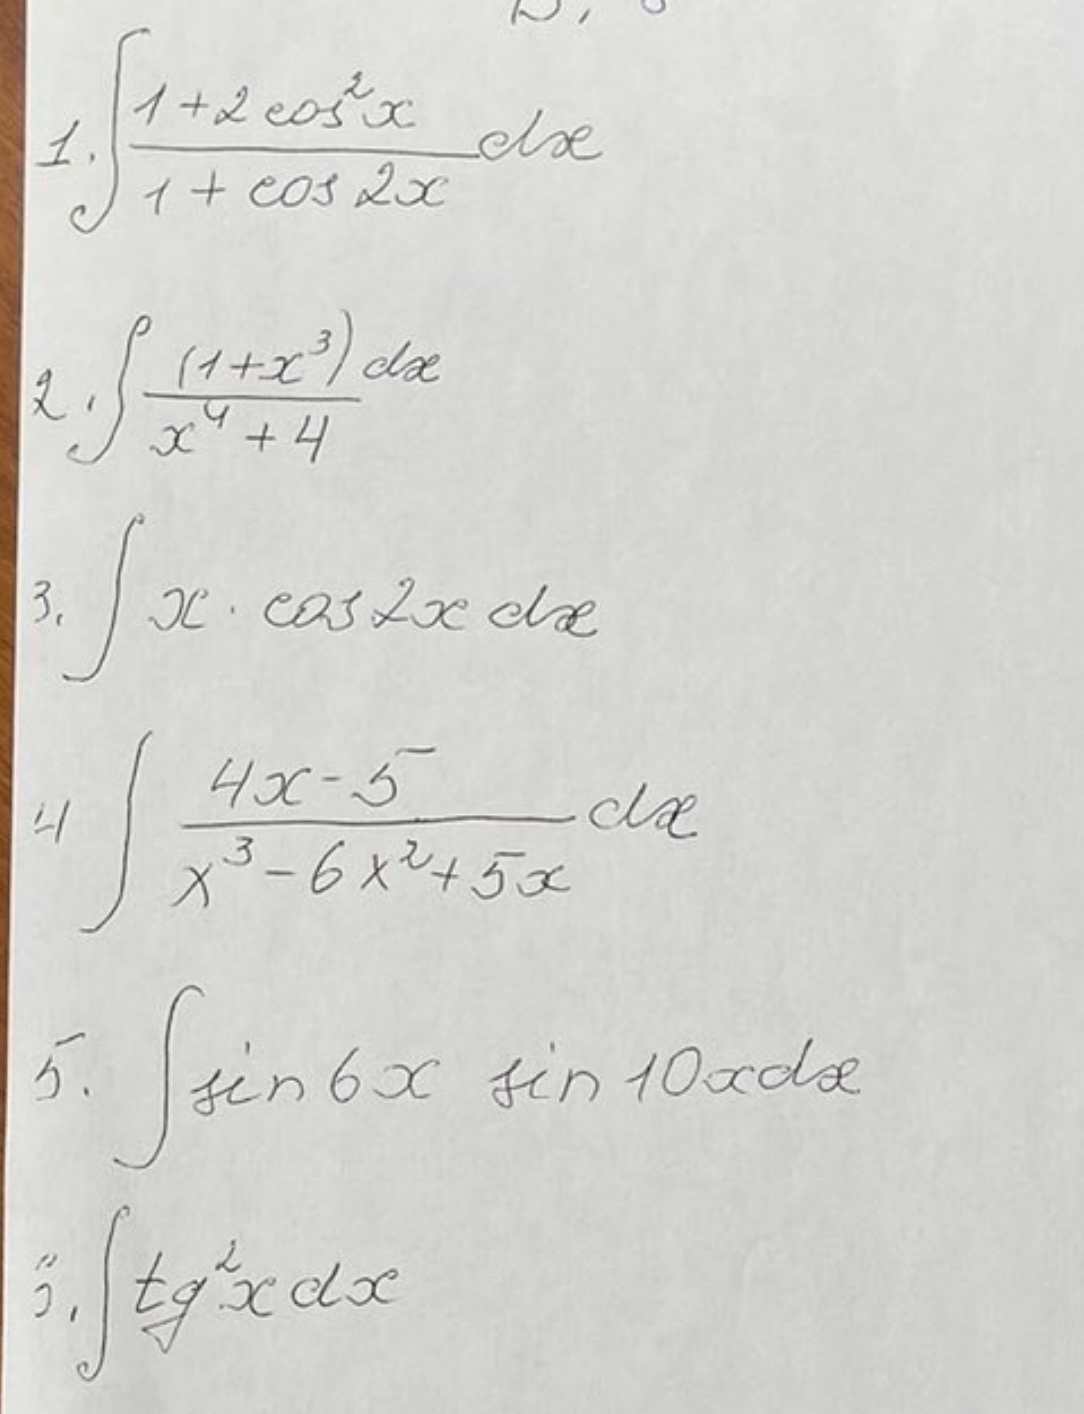 1. ∫ (1 + 2 cos²x)/(1 + cos 2x) dx
2. ∫ ((1 + x³) dx)/(x⁴ + 4)
3. ∫ x · cos 2x dx
4 ∫ (4x - 5)/(x³ - 6x² + 5x) dx
5. ∫ sin 6x sin 10x dx
∫ tg²x dx